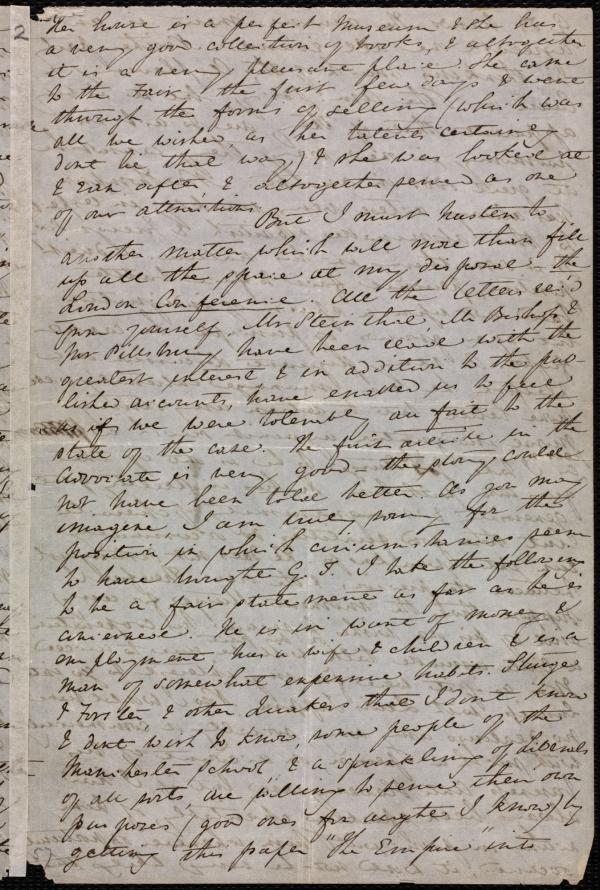 2
Her house is a perfect Museum & she has
a very good collection of books, & altogether
it is a very pleasant place She came
to the Fair the first few days & went
through the forms of selling (which was
all we wished, as her talents certainly
dont lie that way) & she was looked at
& ran after, & altogether served as one
of our attractions.
But I must hasten to
another matter which will more than fill
up all the space at my disposal - the
London Conference. All the letters
from yourself, Mr Steinthal, Mr Bishop &
Mr Pillsbury have been read with the
greatest interest & in addition to the pub-
lished accounts, have enabled us to feel
as if we were tolerably au fait to the
state of the case. The first article in the
Advocate is very good - the story could
not have been told better. As you may
imagine I am truly sorry for the
position in which circumstances seem
to have brought G. T. I take the following
to be a fair statement as far as he is
concerned. He is in want of money &
employment, has a wife & children & is a
man of somewhat expensive habits. Sturge
& Forster, & other Quakers that I dont know
& dont wish to know, some people of the
Manchester School, & a sprinkling of Liberals
of all sorts, are willing to serve their own
purposes (good ones for aught I know) by
getting this paper "The Empire" into